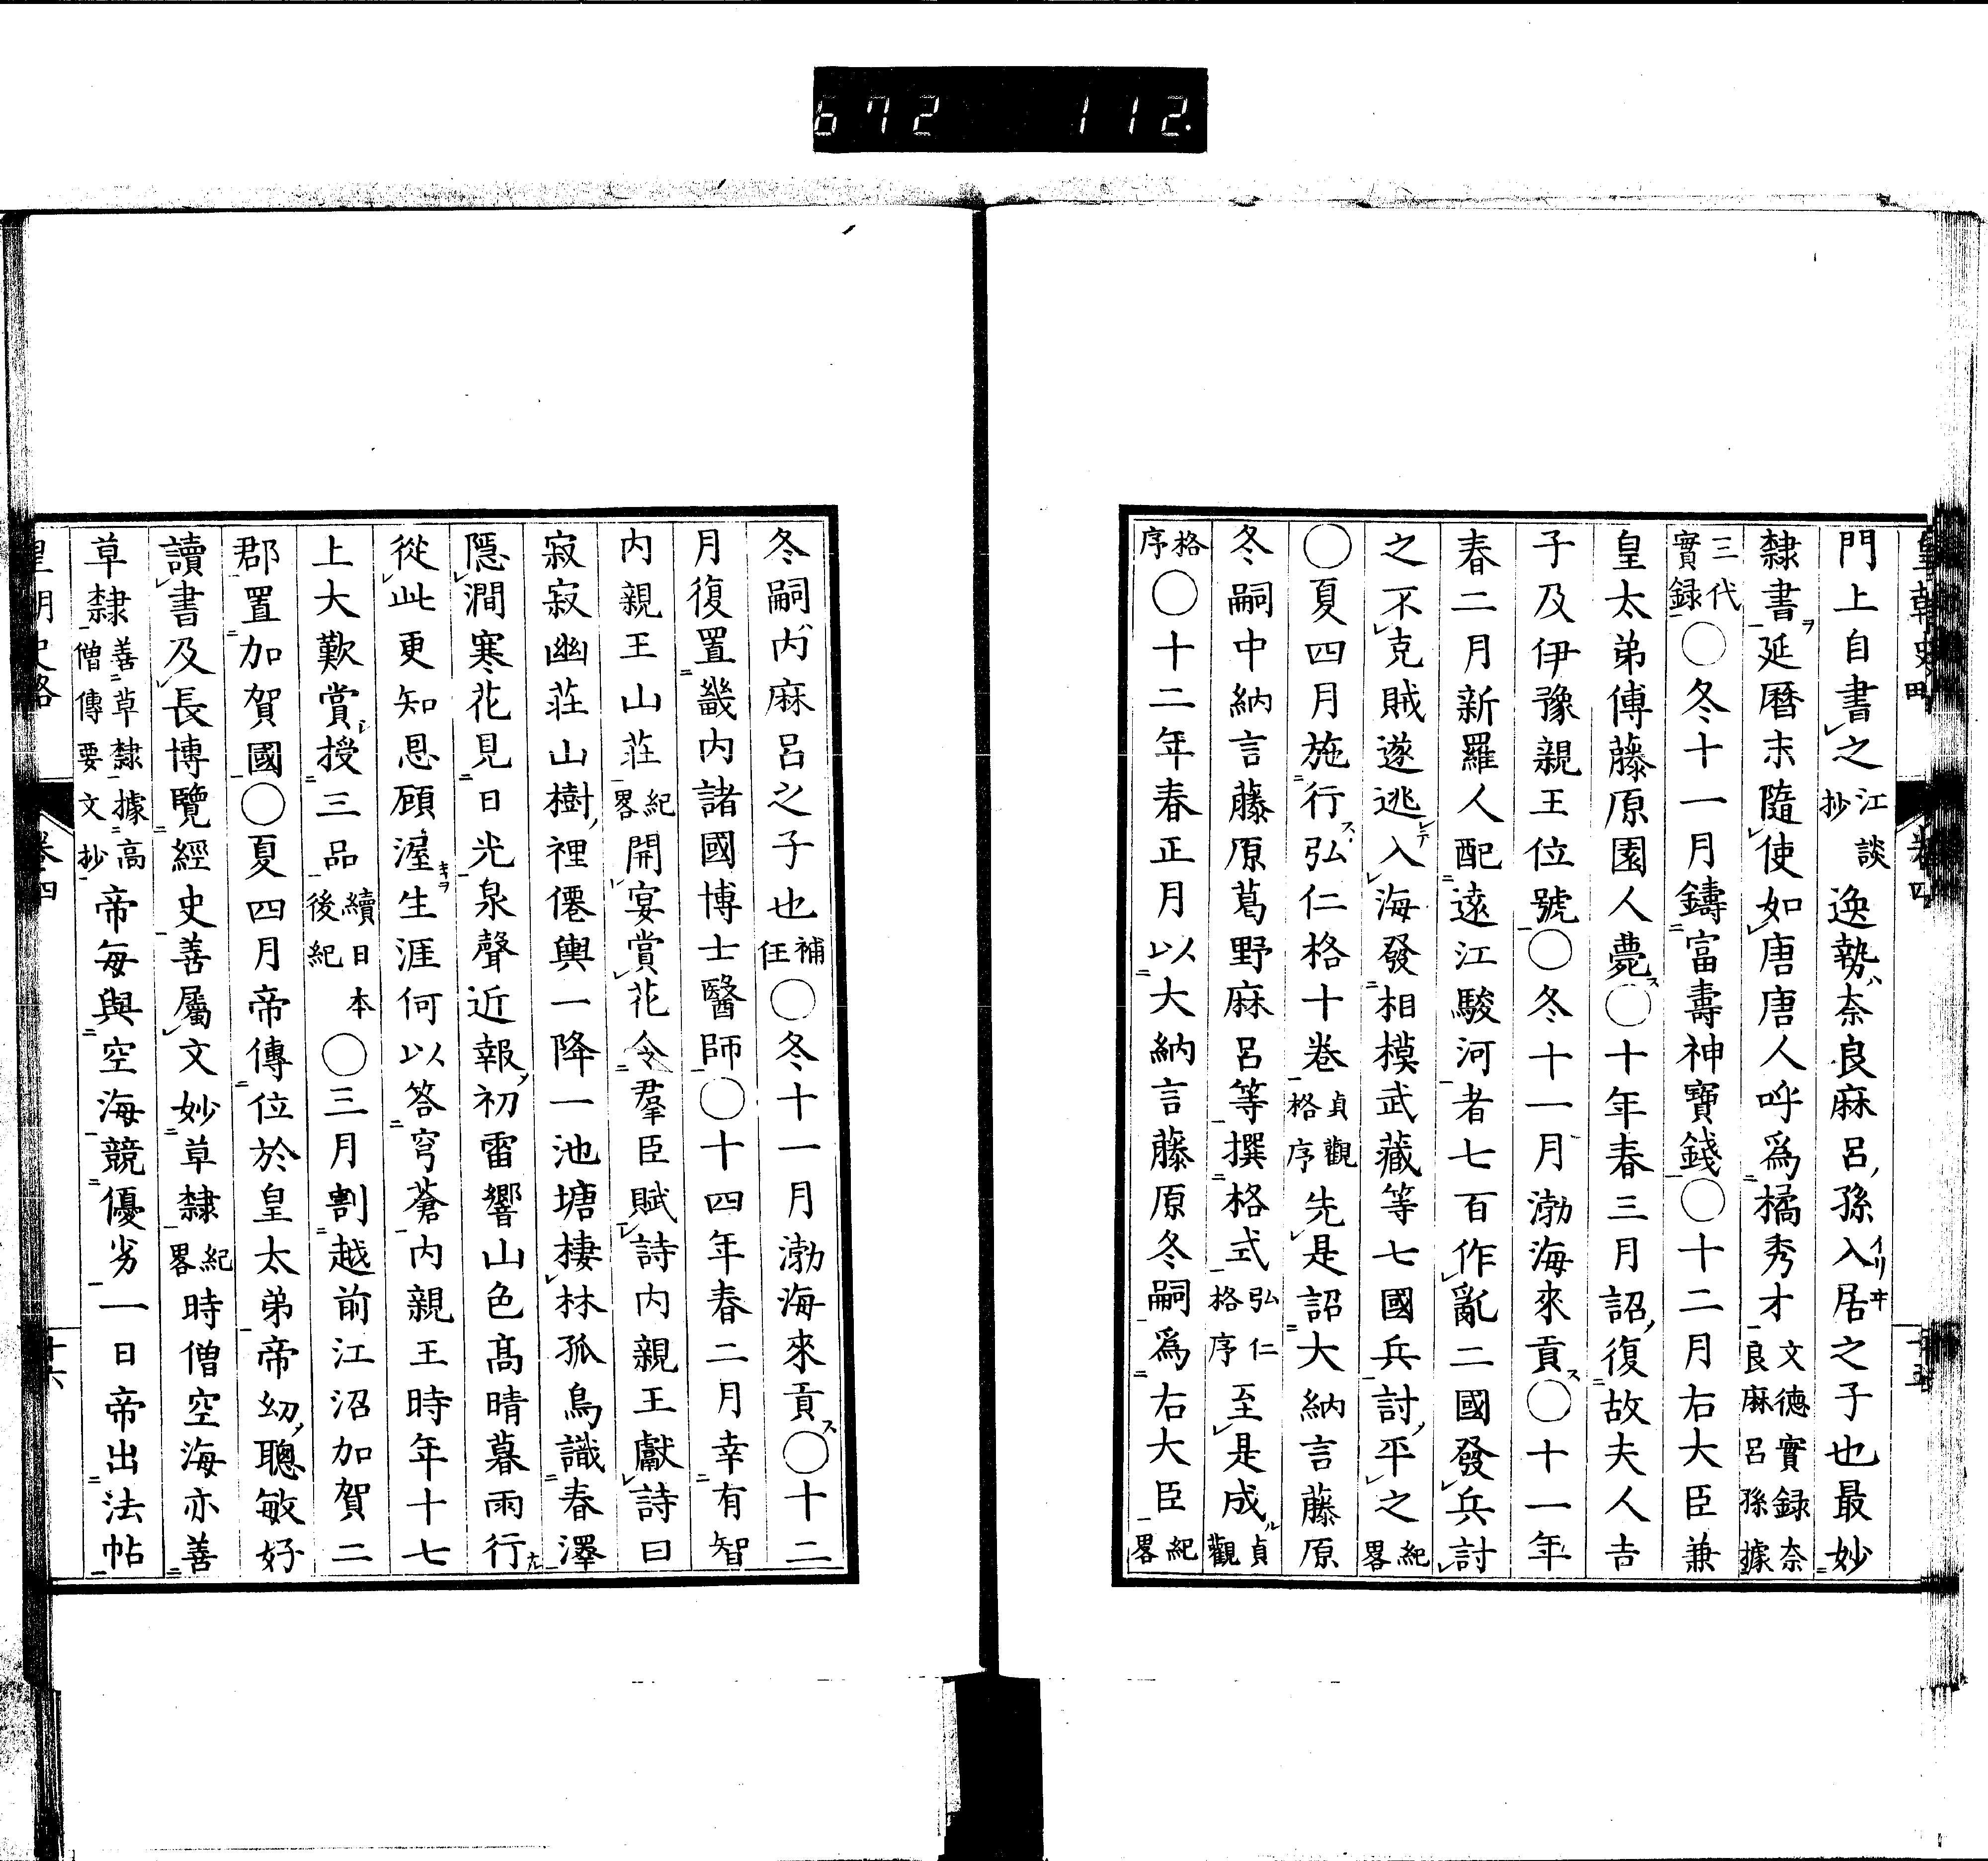 672 112.
門上自書之江談抄逸勢ハ奈良麻呂孫入イリ居ヰ之子也最妙
隸書ヲ延曆末隨使如唐唐人呼爲橘秀才文德實録奈良麻呂孫據
三代實録〇冬十一月鑄富壽神寶錢〇十二月右大臣兼
皇太弟傅藤原園人薨ス〇十年春三月詔復故夫人吉
子及伊豫親王位號〇冬十一月渤海來貢ス〇十一年
春二月新羅人配遠江駿河者七百作亂二國發兵討
之不克賊遂逃入海發相模武藏等七國兵討平之紀畧
〇夏四月施行ス弘仁格十卷貞觀格序先是詔大納言藤原
冬嗣中納言藤原葛野麻呂等撰格式弘仁格序至是成ル貞觀
格序〇十二年春正月以大納言藤原冬嗣爲右大臣紀畧
冬嗣內麻呂之子也補任〇冬十一月渤海來貢ス〇十二
月復置畿内諸國博士醫師〇十四年春二月幸有智
内親王山莊紀畧開宴賞花令羣臣賦詩内親王獻詩曰
寂寂幽莊山樹裡僊輿一降一池塘棲林孤鳥識春澤
隱澗寒花見日光泉聲近報初雷響山色高晴暮雨行
從此更知恩顧渥生涯何以答穹蒼内親王時年十七
上大歎賞授三品續日本後紀〇三月割越前江沼加賀二
郡置加賀國〇夏四月帝傳位於皇太弟帝幼聰敏好
讀書及長博覽經史善屬文妙草隸紀畧時僧空海亦善
草隸善草隸據高僧傳要文抄帝每與空海競優劣一日帝出法帖
皇朝史略 卷四 十六